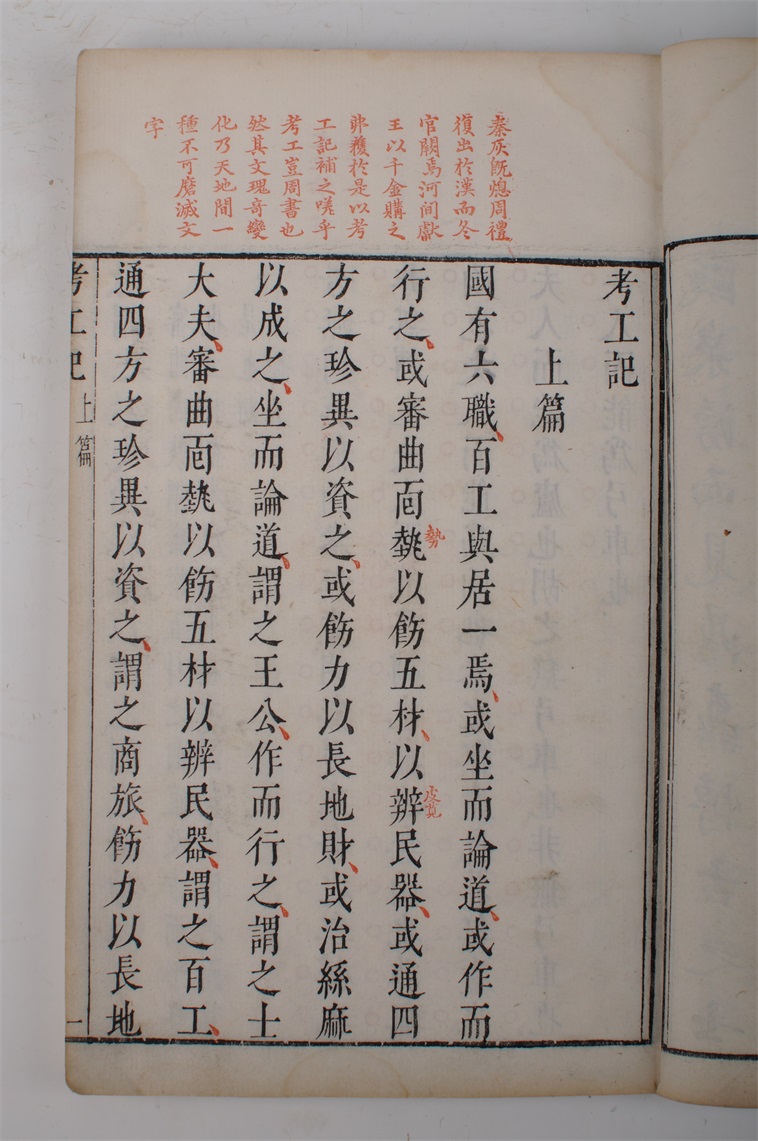 秦灰既熄周禮
復出於漢而冬
官闕焉河間獻
王以千金購之
弗獲於是以考
工記補之嗟乎
考工豈周書也
然其文瑰奇變
化乃天地間一
種不可磨滅文
字
考工記
上篇
國有六職百工與居一焉或坐而論道或作而
行之或審曲面埶以飭五材以辨民器或通四
勢
皮莧
方之珍異以資之或飭力以長地財或治絲麻
以成之坐而論道謂之王公作而行之謂之士
大夫審曲面埶以飭五材以辨民器謂之百工
通四方之珍異以資之謂之商旅飭力以長地
考工記
上篇
一